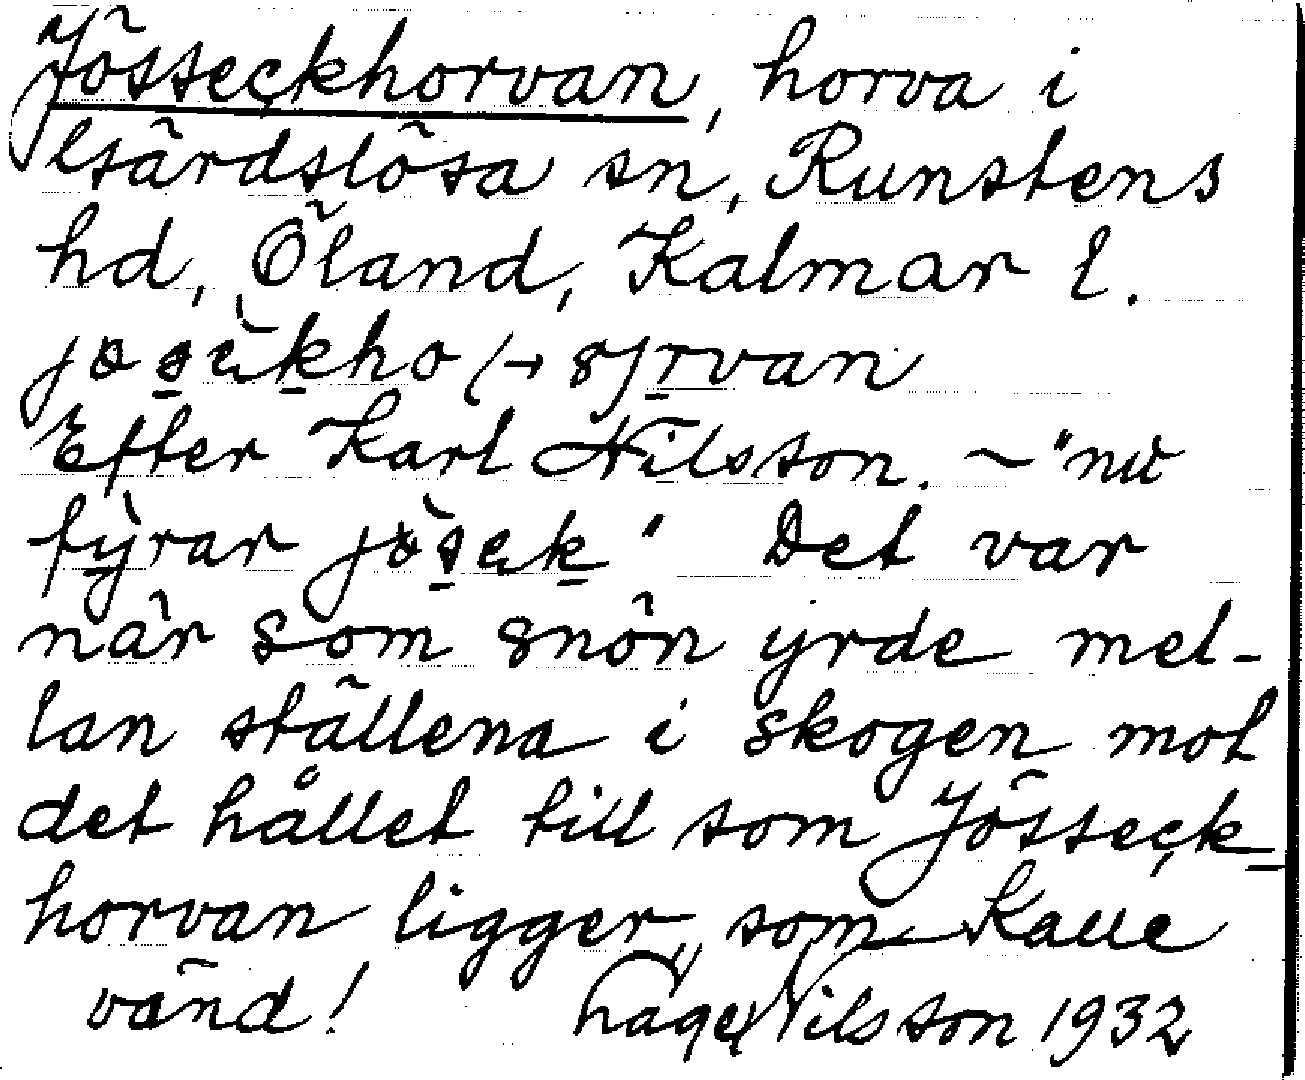 Jösseckhorvan, horva i
Gärdslösa sn, Runstens
hd, Öland, Kalmar l.
Efter Karl Nilsson. – "nu
fyrar jösek" Det var
när som snön yrde mel-
lan ställena i skogen mot
det hållet till som Jösseck-
horvan ligger, som Kalle
vänd! Nilsson 1932